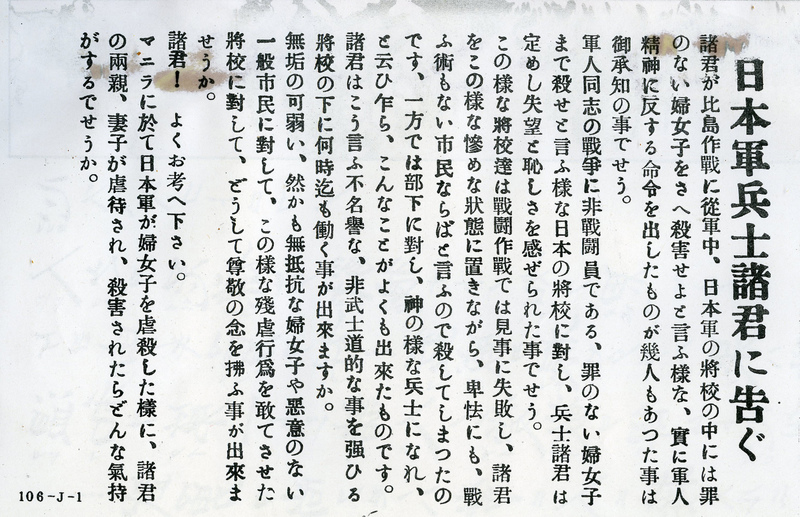 日本軍兵士諸君に告ぐ
諸君が比島作戰に從軍中、日本軍の將校の中には罪
のない婦女子をさへ殺害せよと言ふ樣な、實に軍人
精神に反する命令を出したものが幾人もあつた事は
御承知の事でせう。
軍人同志の戰爭に非戰鬪員である、罪のない婦女子
まで殺せと言ふ樣な日本の將校に對し、兵士諸君は
定めし失望と恥しさを感ぜられた事でせう。
この樣な將校達は戰鬪作戰では見事に失敗し、諸君
をこの樣な慘めな狀態に置きながら、卑怯にも、戰
ふ術もない市民ならばと言ふので殺してしまつたの
です、一方では部下に對し、神の樣な兵士になれ、
と云ひ乍ら、こんなことがよくも出來たものです。
諸君はこう言ふ不名譽な、非武士道的な事を强ひる
將校の下に何時迄も働く事が出來ますか。
無垢の可弱い、然かも無抵抗な婦女子や惡意のない
一般市民に對して、この樣な殘虐行爲を敢てさせた
將校に對して、どうして尊敬の念を拂ふ事が出來ま
せうか。
諸君！　よくお考へ下さい。
マニラに於て日本軍が婦女子を虐殺した樣に、諸君
の兩親、妻子が虐待され、殺害されたらどんな氣持
がするでせうか。
106-J-1